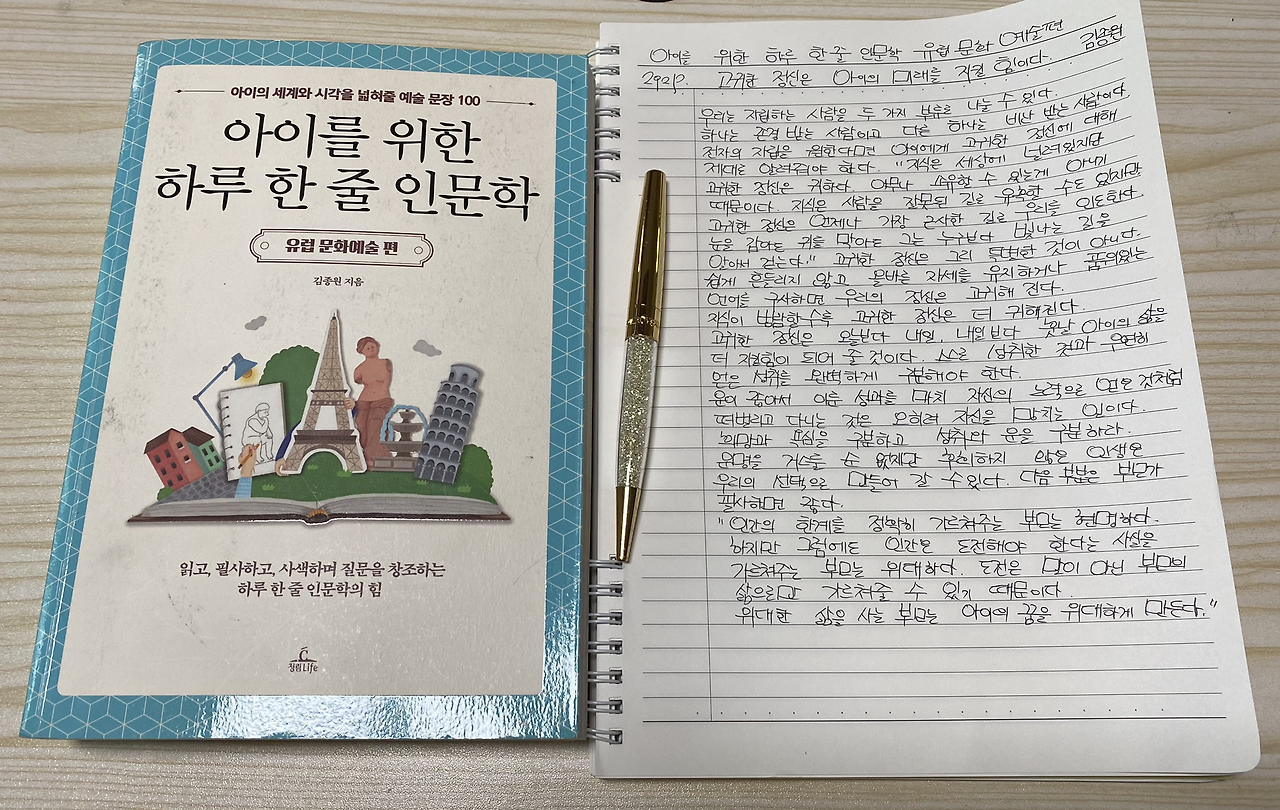 아이의 세계와 시각을 넓혀줄 예술 문장 100
아이를 위한
하루 한 줄 인문학
유럽 문화예술 편
김종원 지음
읽고, 필사하고, 사색하며 질문을 창조하는
하루 한 줄 인문학의 힘
청림Life
아이를 위한 하루 한 줄 인문학 유럽 문화 예술편 김종원
292P. 고귀한 정신은 아이의 미래를 지킬 힘이다.
우리는 자립하는 사람을 두 가지 부류로 나눌 수 있다.
하나는 존경 받는 사람이고 다른 하나는 비난 받는 사람이다.
전자의 자립을 원한다면 아이에게 고귀한 정신에 대해
제대로 알려줘야 한다. "지식은 세상에 널려있지만
고귀한 정신은 귀하다. 아무나 소유할 수 있는게 아니기
때문이다. 지식은 사람을 잘못된 길로 유혹할 수도 있지만
고귀한 정신은 언제나 가장 근사한 길로 우리를 인도한다.
눈을 감아도 귀를 막아도 그는 누구보다 빛나는 길을
알아서 걷는다." 고귀한 정신은 그리 특별한 것이 아니다.
쉽게 흔들리지 않고 올바른 자세를 유지하거나 품위있는
언어를 구사하면 우리의 정신은 고귀해 진다.
지식이 방황할수록 고귀한 정신은 더 귀해진다.
고귀한 정신은 오늘보다 내일, 내일보다 훗날 아이의 삶을
더 지킬힘이 되어 줄 것이다. 스스로 성취한 것과 우연히
얻은 성취를 완벽하게 구분해야 한다.
운이 좋아서 이룬 성과를 마치 자신의 노력으로 얻은 것처럼
떠벌리고 다니는 것은 오히려 자신을 망치는 일이다.
희망과 욕심을 구분하고 성취와 운을 구분하라.
운명을 거스를 순 없지만 후회하지 않은 인생은
우리의 선택으로 만들어 갈 수 있다. 다음 부분은 부모가
필사하면 좋다.
"인간의 한계를 정확히 가르쳐주는 부모는 현명하다.
하지만 그럼에도 인간은 도전해야 한다는 사실을
가르쳐주는 부모는 위대하다. 도전은 말이 아닌 부모의
삶으로만 가르쳐줄 수 있기 때문이다.
위대한 삶을 사는 부모는 아이의 꿈을 위대하게 만든다."